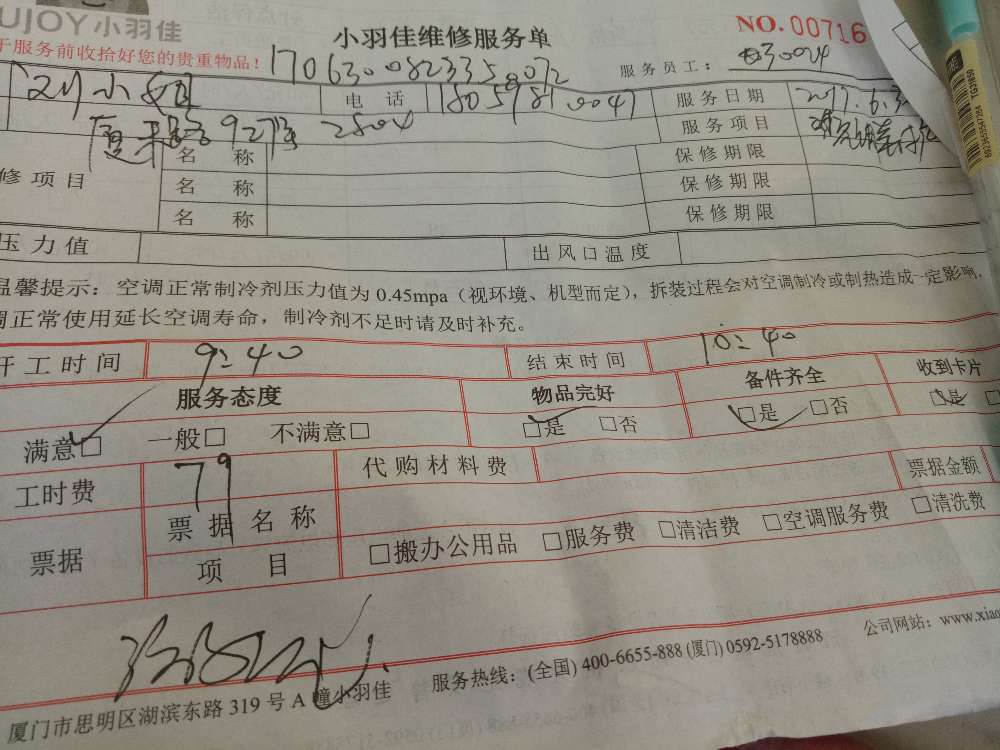 UJOY小羽佳
小羽佳维修服务单
NO.00716
于服务前收拾好您的贵重物品！
服务员工：
小姐
电 话
服务日期
2017.6.3
927
2804
服务项目
名 称
保修期限
修项目
名 称
保修期限
名 称
保修期限
压力值
出风口温度
温馨提示：空调正常制冷剂压力值为 0.45mpa（视环境、机型而定），拆装过程会对空调制冷或制热造成一定影响，
调正常使用延长空调寿命，制冷剂不足时请及时补充。
开工时间 9：40 结束时间 10：40
服务态度 物品完好 备件齐全 收到卡片
满意□ 一般□ 不满意□ □是 □否 □是 □否 □是 □
工时费 79 代购材料费
票据 票据名称 票据金额
项 目 □搬办公用品 □服务费 □清洁费 □空调服务费 □清洗费
厦门市思明区湖滨东路 319 号 A 幢小羽佳 服务热线：(全国) 400-6655-888 (厦门) 0592-5178888 公司网站：www.xiao